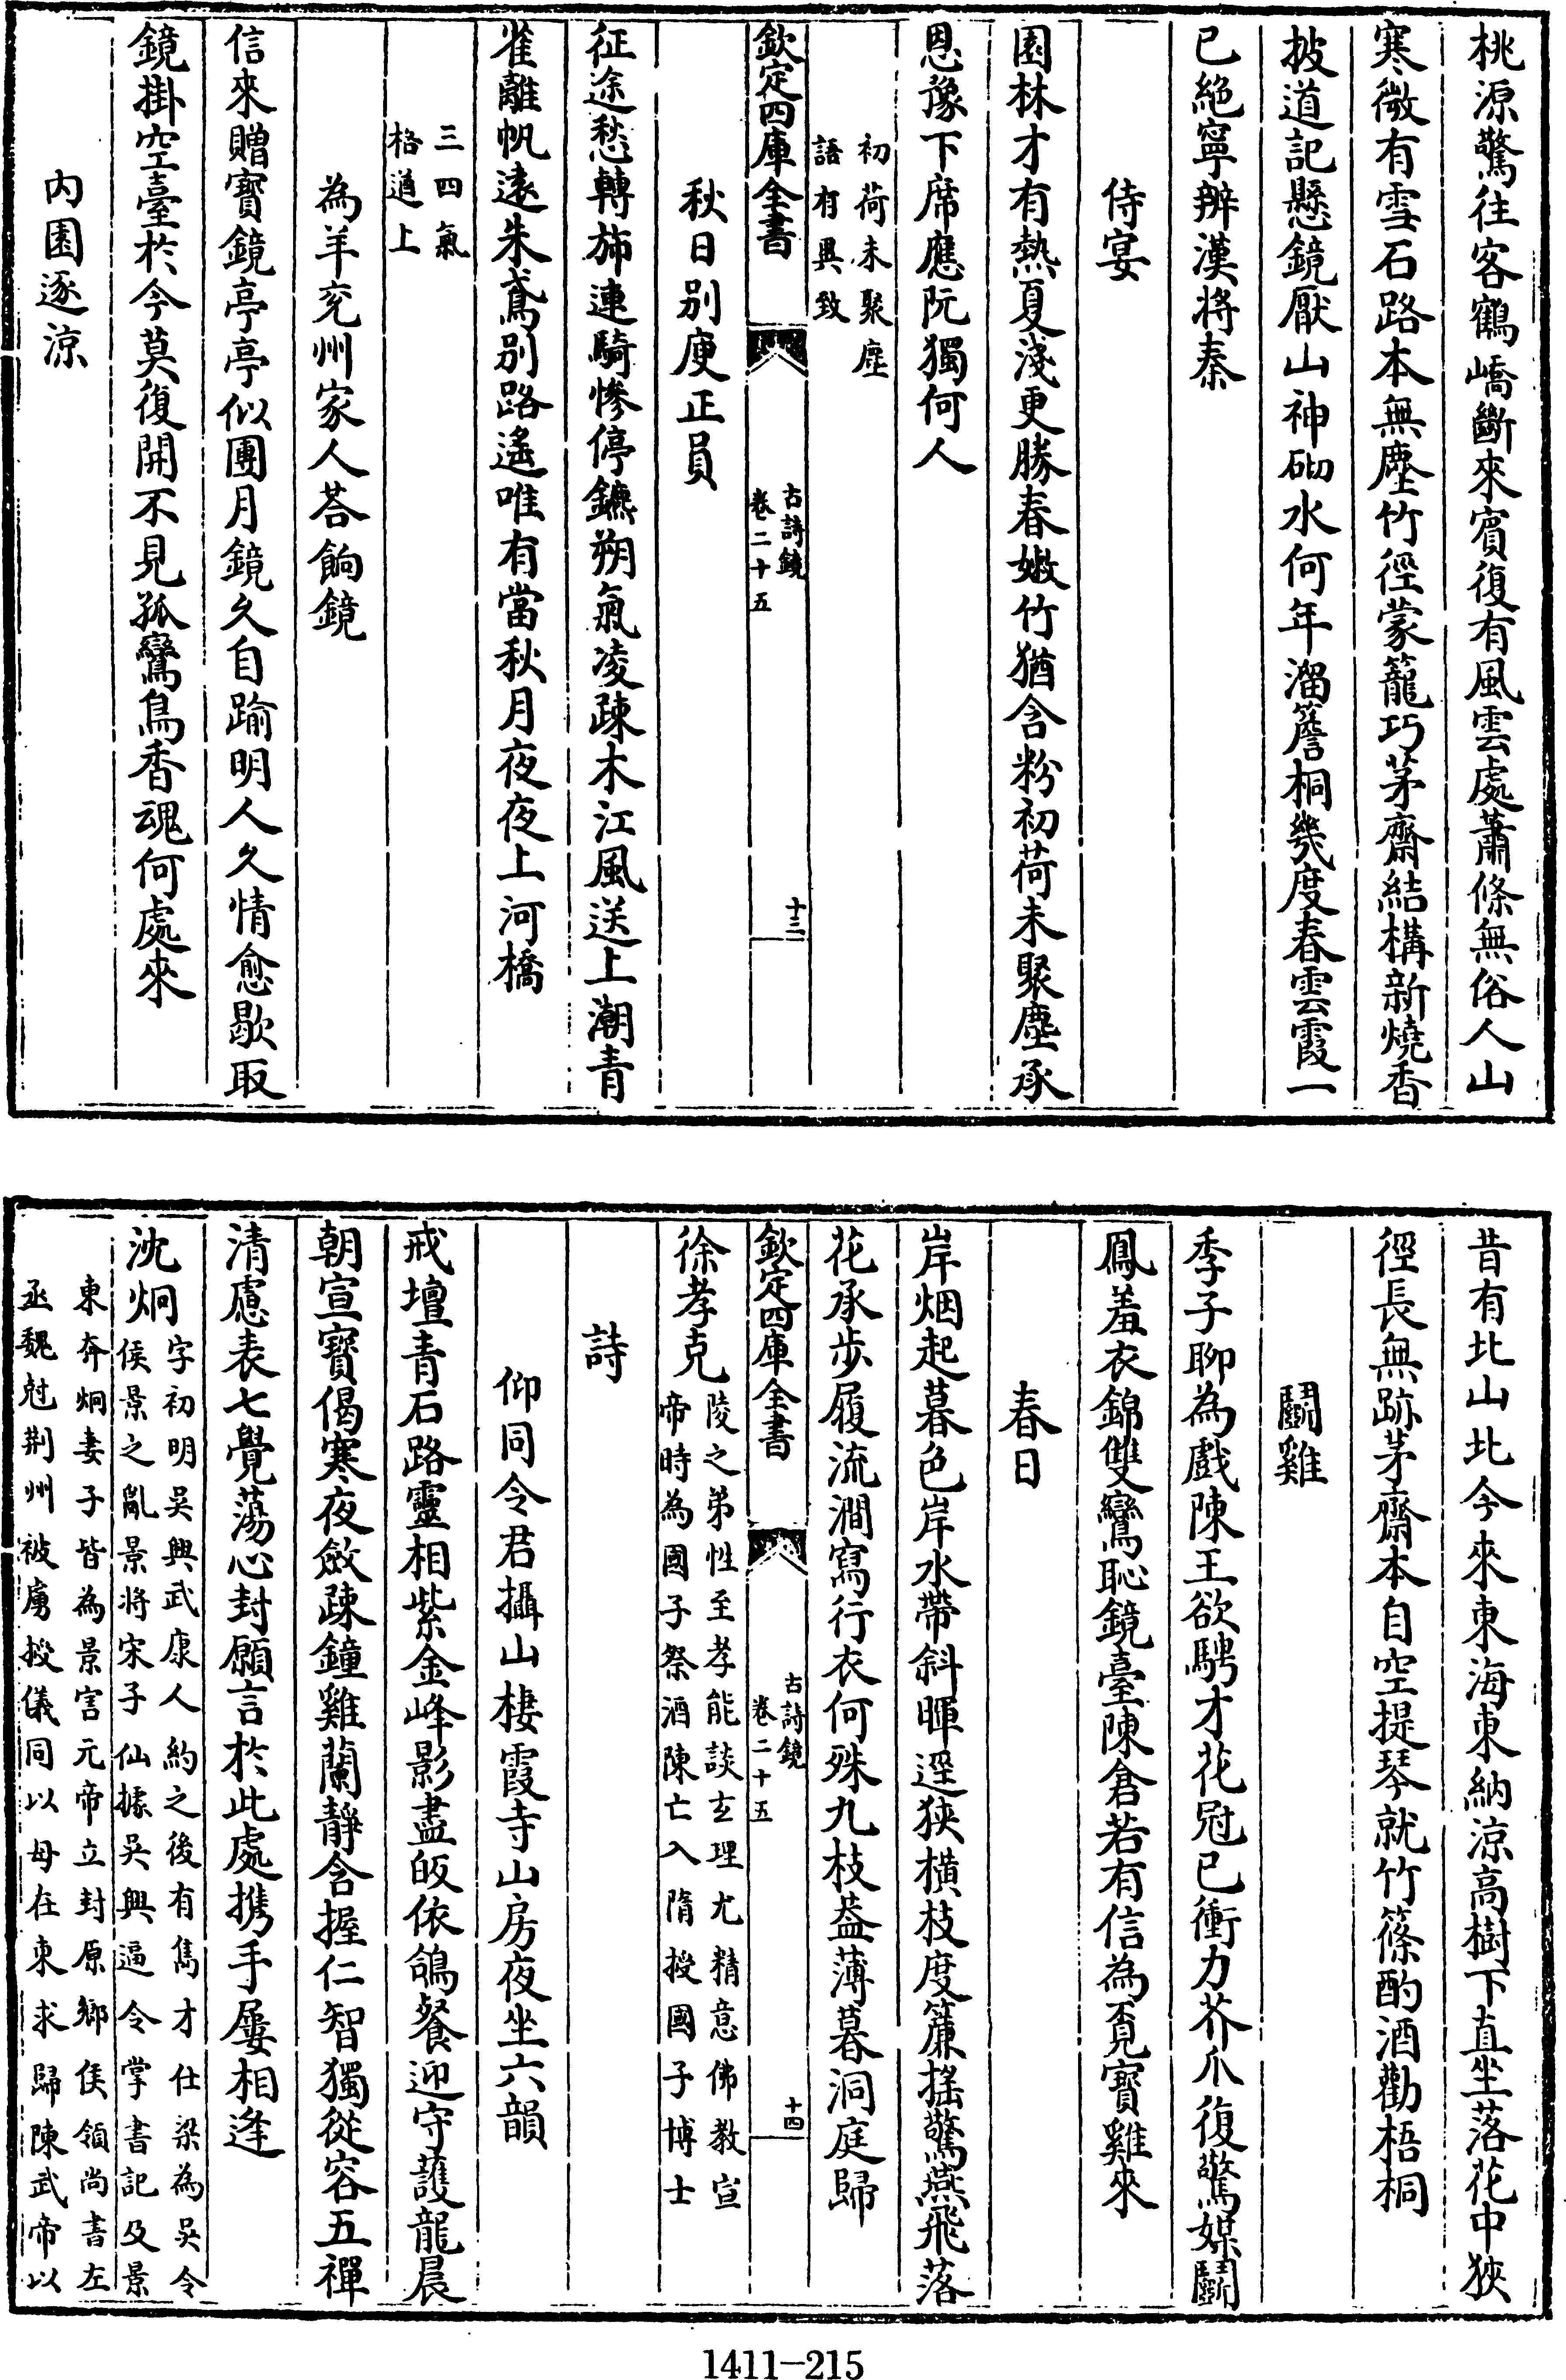 桃源驚往客鶴嶠斷來賓復有風雲處蕭條無俗人山
寒微有雪石路本無塵竹徑蒙籠巧茅齋結構新燒香
披道記懸鏡厭山神砌水何年溜簷桐幾度春雲霞一
已絶寧辨漢將秦
侍宴
園林才有熱夏淺更勝春嫩竹猶含粉初荷未聚塵承
恩豫下席應阮獨何人
初荷未聚塵
語有興致
欽定四庫全書
古詩鏡
卷二十五
十三
秋日别庾正員
征途愁轉斾連騎慘停鑣朔氣凌疎木江風送上潮青
雀離帆逺朱鳶别路遙唯有當秋月夜夜上河橋
三四氣
格遒上
為羊兖州家人荅餉鏡
信來贈寳鏡亭亭似團月鏡久自踰明人久情愈歇取
鏡掛空臺於今莫復開不見孤鸞鳥香魂何處來
内園逐涼
昔有北山北今來東海東納涼高樹下直坐落花中狹
徑長無跡茅齋本自空提琴就竹篠酌酒勸梧桐
鬭雞
季子聊為戲陳王欲騁才花冠已衝力芥爪復驚媒鬭
鳳羞衣錦雙鸞恥鏡臺陳倉若有信為覓寳雞來
春日
岸烟起暮色岸水帶斜暉逕狹横枝度簾摇驚燕飛落
花承步履流澗寫行衣何殊九枝葢薄暮洞庭歸
欽定四庫全書
古詩鏡
卷二十五
十四
徐孝克
陵之弟性至孝能談玄理尤精意佛教宣
帝時為國子祭酒陳亡入隋授國子博士
詩
仰同令君攝山棲霞寺山房夜坐六韻
戒壇青石路靈相紫金峰影盡皈依鴿餐迎守護龍晨
朝宣寳偈寒夜斂疎鐘雞蘭靜含握仁智獨從容五禪
清慮表七覺蕩心封願言於此處携手屢相逢
沈炯
字初明吳興武康人約之後有雋才仕梁為吳令
侯景之亂景將宋子仙據吳興逼令掌書記及景
東奔炯妻子皆為景害元帝立封原鄉侯領尚書左
丞魏尅荆州被虜授儀同以母在東求歸陳武帝以
1411-215